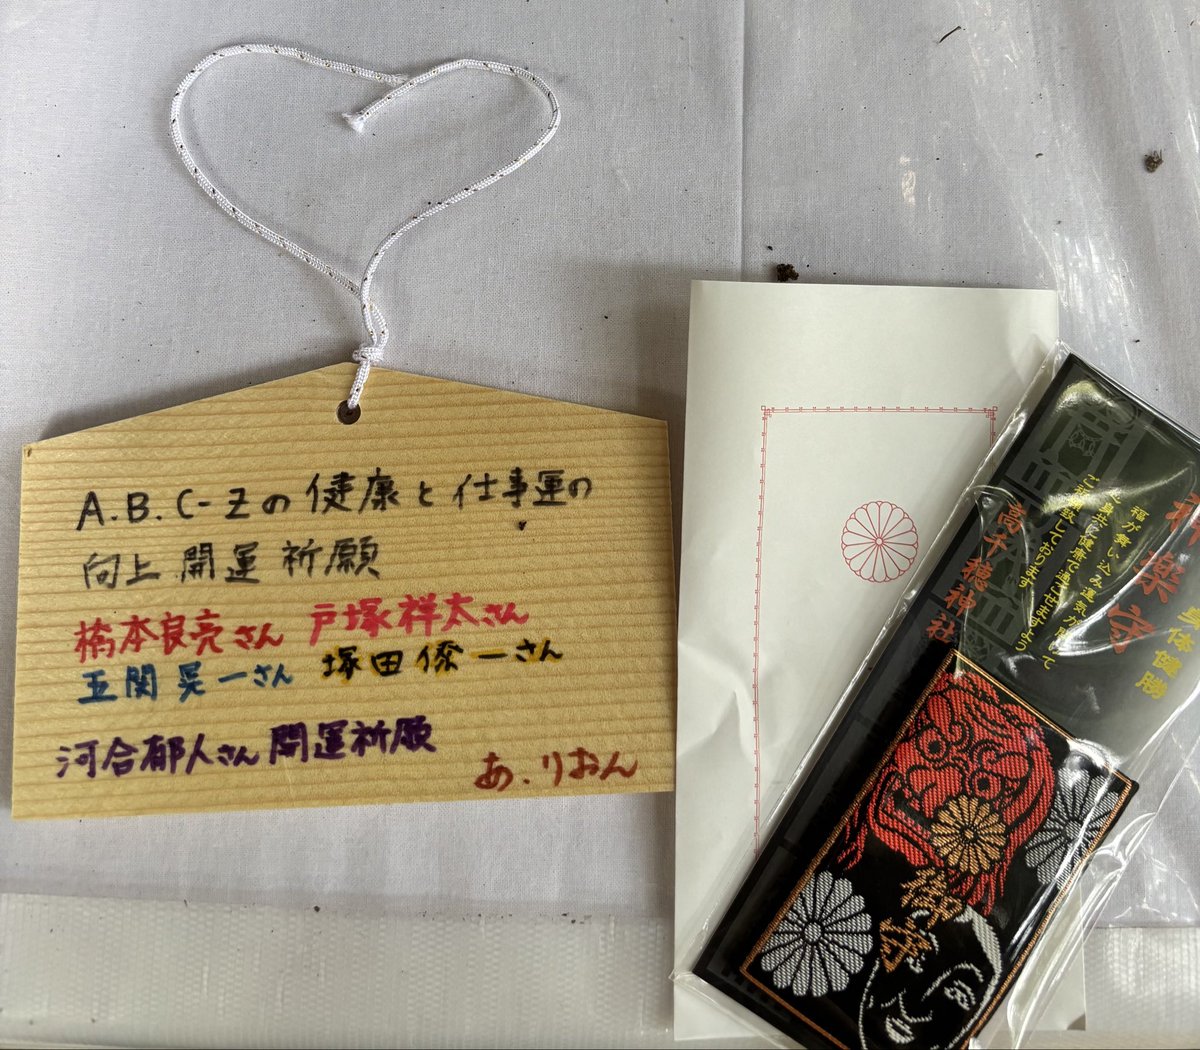 A.B.C-Zの健康と仕事運の
向上 開運 祈願
橋本良亮さん 戸塚祥太さん
五関晃一さん 塚田僚一さん
河合郁人さん 開運祈願
あ.りおん
神楽守
身体健勝
福が舞い込み運気が開いて
心身共に健康で過ごせますよう
ご祈願致しております
高千穂神社
御守